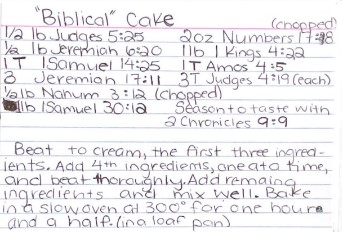 "Biblical" Cake
(chopped)
1/2 lb Judges 5:25 2oz Numbers 17:8
1/2 lb Jeremiah 6:20 1lb 1 Kings 4:22
1 T 1Samuel 14:25 1T Amos 4:5
3 Jeremiah 17:11 3T Judges 4:19(each)
1/2lb Nahum 3:12 (chopped)
1lb 1Samuel 30:12 Season to taste with
2 Chronicles 9:9
Beat to cream, the first three ingred-
ients. Add 4th ingrediems, one at a time,
and beat thoroughly. Add remaing
ingredients and mix well. Bake
in a slow oven at 300° for one hour
and a half. (in a loaf pan)